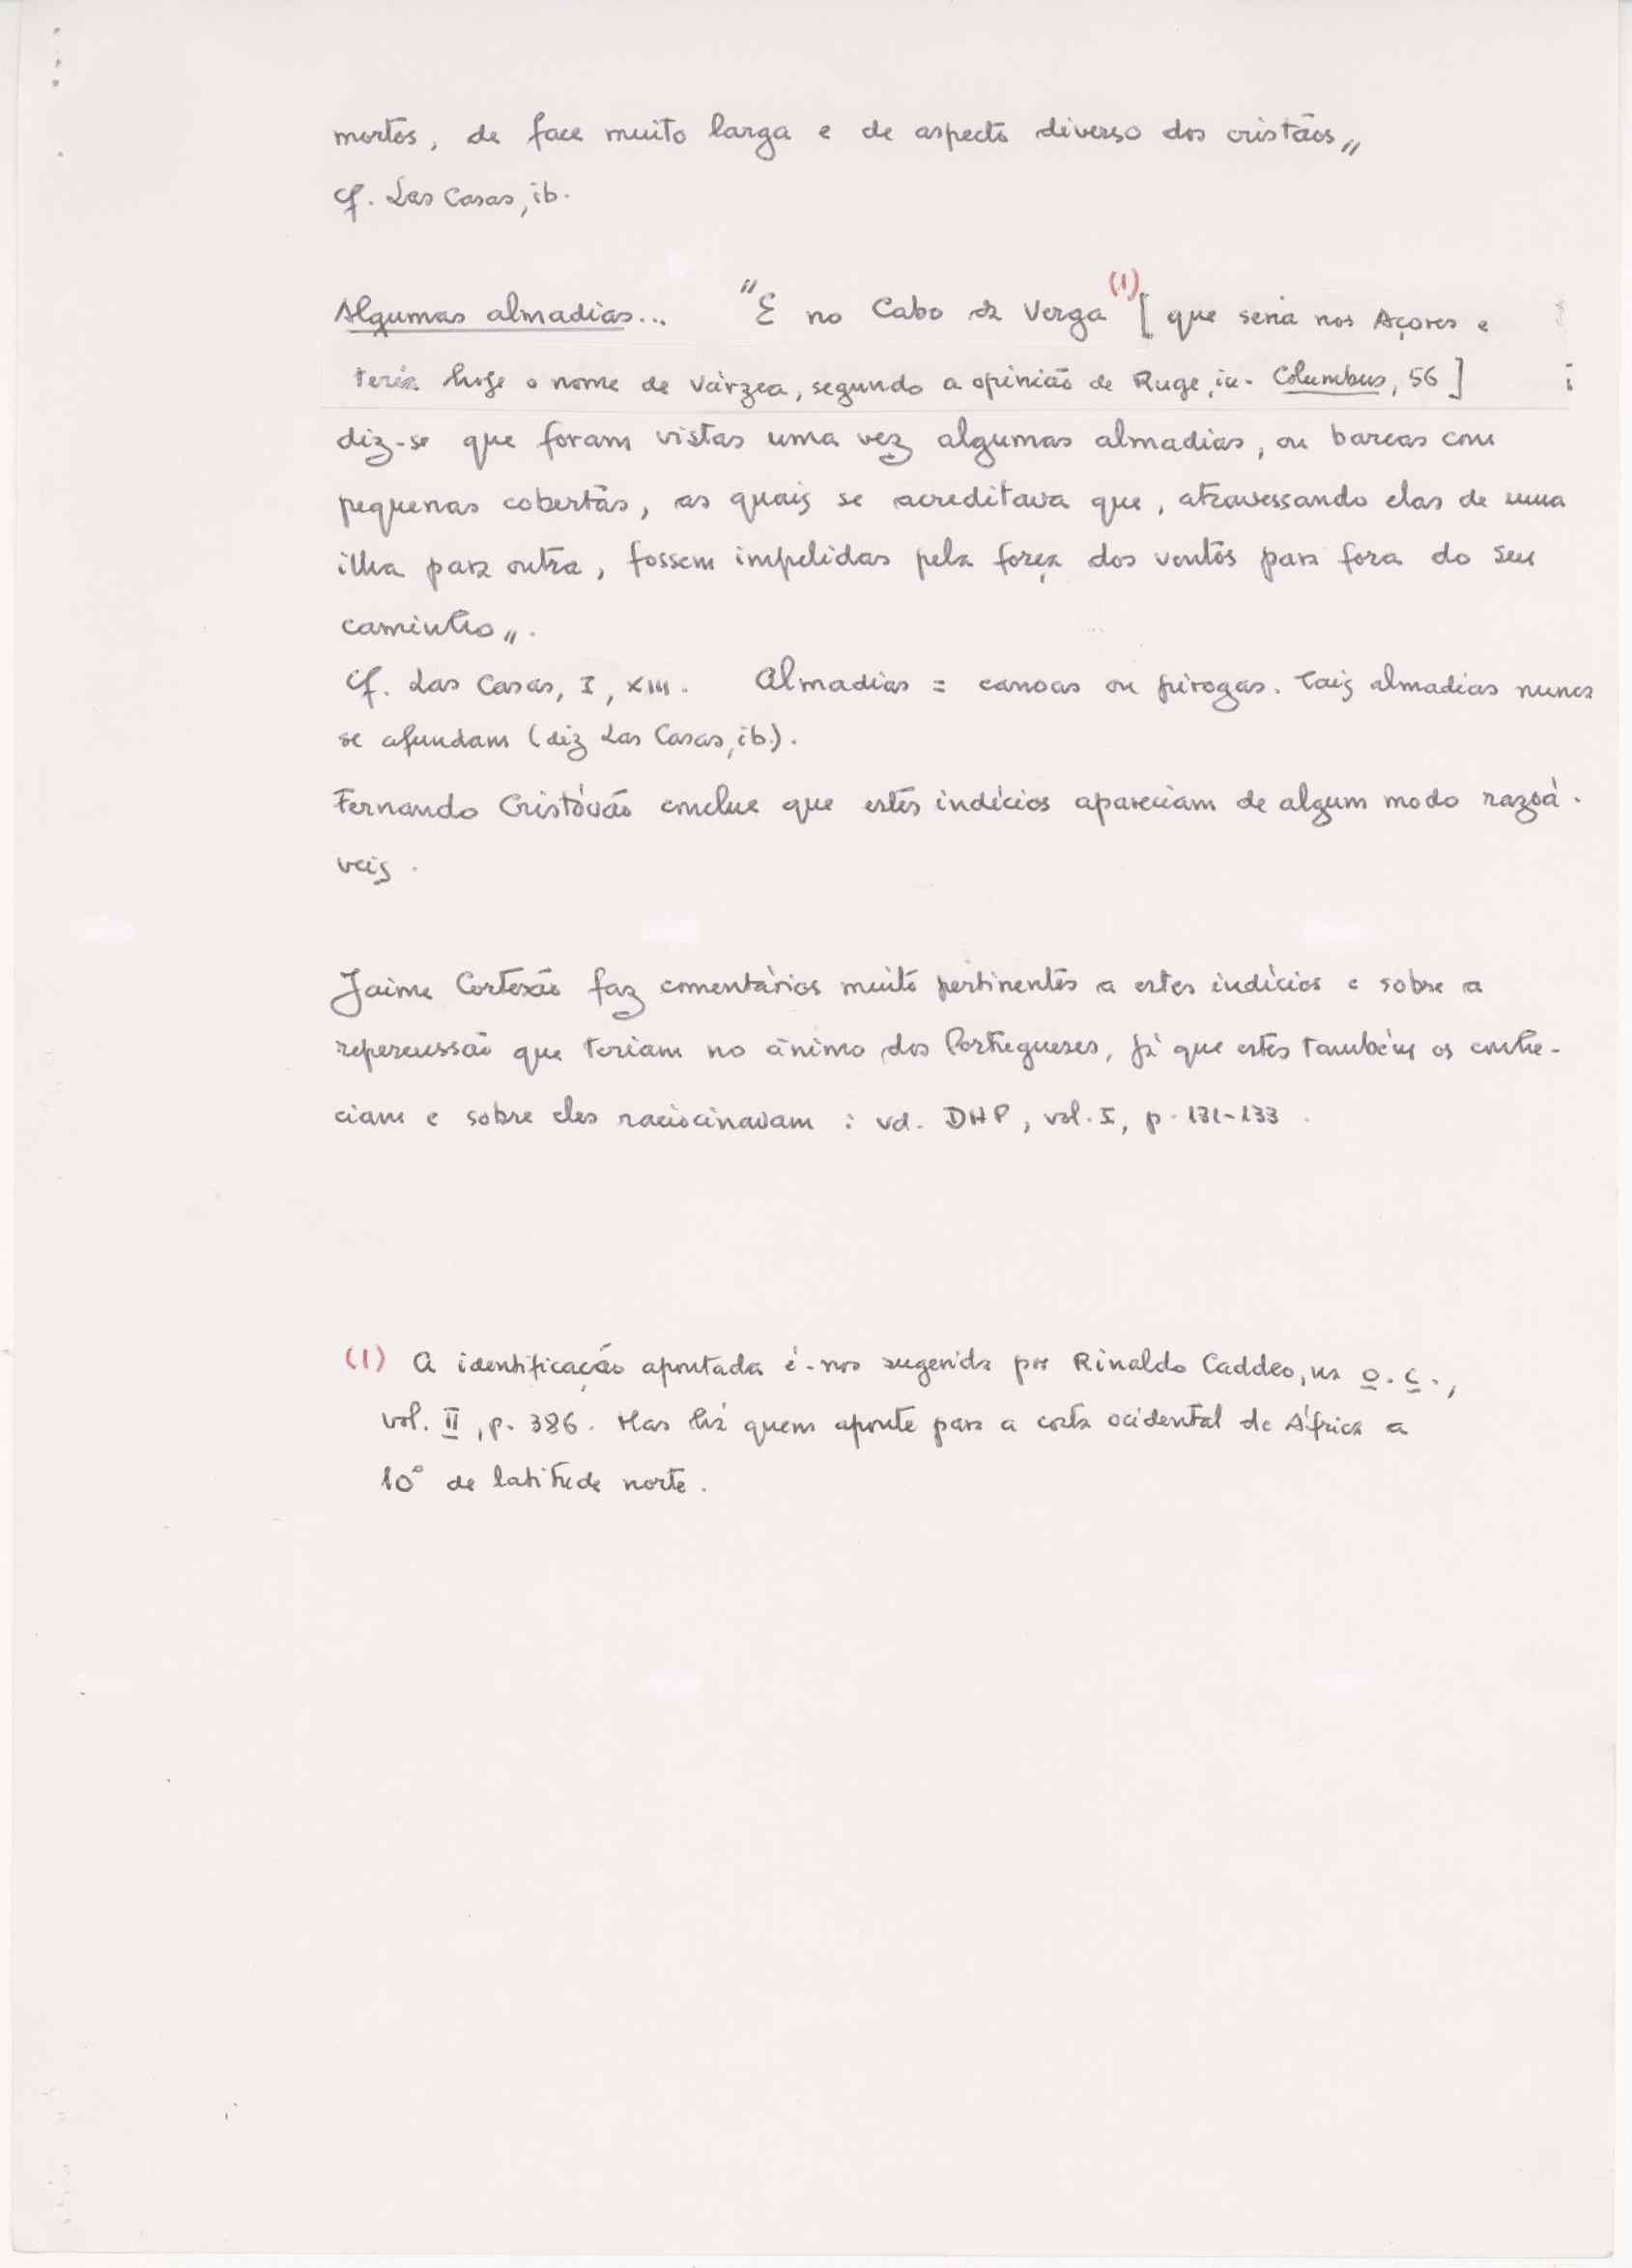 mortos, de face muito larga e de aspecto diverso dos cristãos„
Cf. Las Casas, ib.
Algumas almadias... "E no Cabo da Verga (1) [que seria nos Açores e
teria hoje o nome de Várzea, segundo a opinião de Ruge, in. Columbus, 56]
diz-se que foram vistas uma vez algumas almadias, ou barcas com
pequenas cobertas, as quais se acreditava que, atravessando elas de uma
ilha para outra, fossem impelidas pela força dos ventos para fora do seu
caminho„.
Cf. Las Casas, I, XIII. Almadias = canoas ou pirogas. Tais almadias nunca
se afundam (diz Las Casas, ib.).
Fernando Cristóvão conclue que estes indícios apareciam de algum modo razoá-
veis.
Jaime Cortesão faz comentários muito pertinentes a estes indícios e sobre a
repercussão que teriam no ânimo dos Portugueses, já que estes também os conhe-
ciam e sobre eles raciocinavam : vd. DHP, vol. I, p. 131-133.
(1) A identificação apontada é-nos sugerida por Rinaldo Caddeo, na o. c.,
vol. II, p. 386. Mas há quem aponte para a costa ocidental de África a
10° de latitude norte.